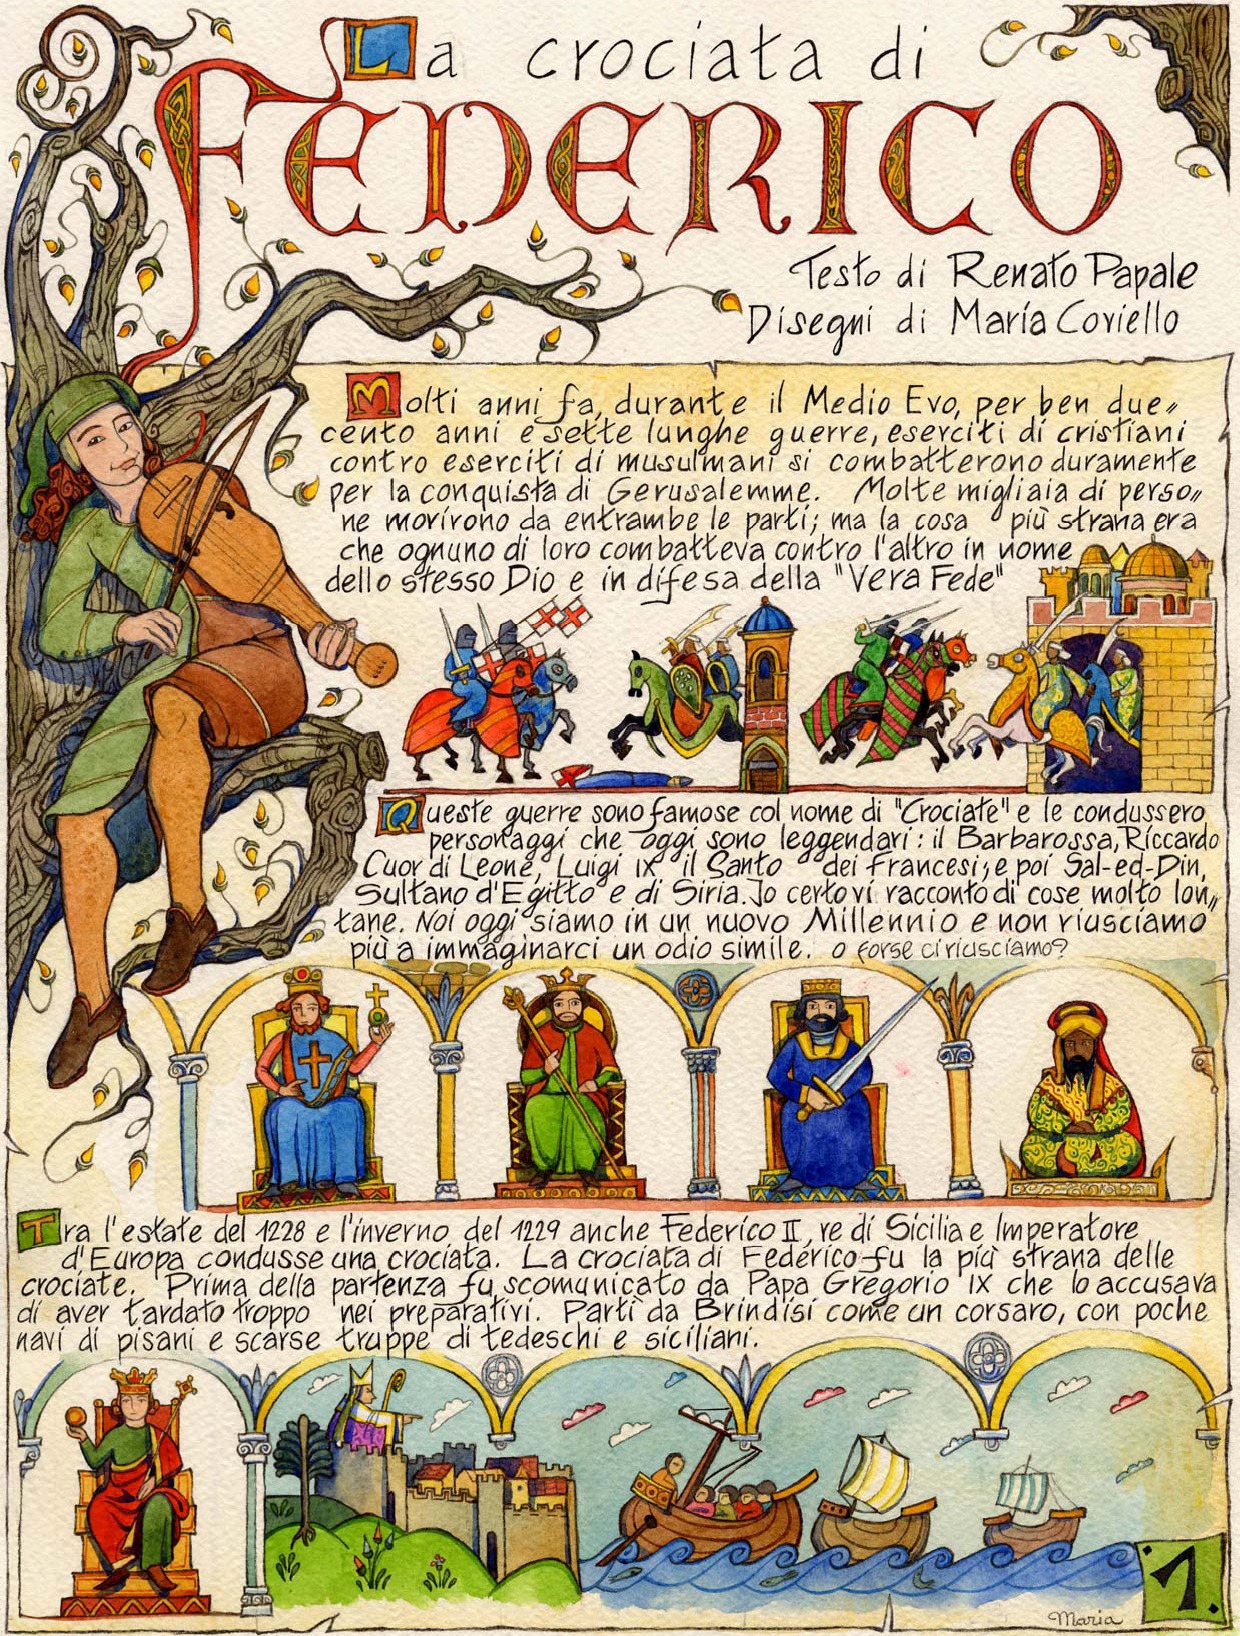 La crociata di
FEDERICO
Testo di Renato Papale
Disegni di María Coviello
Molti anni fa, durante il Medio Evo, per ben due〃
cento anni e sette lunghe guerre, eserciti di cristiani
contro eserciti di musulmani si combatterono duramente
per la conquista di Gerusalemme. Molte migliaia di perso〃
ne morirono da entrambe le parti; ma la cosa più strana era
che ognuno di loro combatteva contro l'altro in nome
dello stesso Dio e in difesa della "Vera Fede"
Queste guerre sono famose col nome di "Crociate" e le condussero
personaggi che oggi sono leggendari: il Barbarossa, Riccardo
Cuor di Leone, Luigi IX il Santo dei francesi; e poi Sal-ed-Din,
Sultano d'Egitto e di Siria. Io certo vi racconto di cose molto lon〃
tane. Noi oggi siamo in un nuovo Millennio e non riusciamo
più a immaginarci un odio simile. o forse ci riusciamo?
Tra l'estate del 1228 e l'inverno del 1229 anche Federico II, re di Sicilia e Imperatore
d'Europa condusse una crociata. La crociata di Federico fu la più strana delle
crociate. Prima della partenza fu scomunicato da Papa Gregorio IX che lo accusava
di aver tardato troppo nei preparativi. Partì da Brindisi come un corsaro, con poche
navi di pisani e scarse truppe di tedeschi e siciliani.
Maria
1.